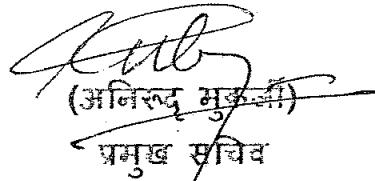 (अनिरुद्ध मुकर्जी)
प्रमुख सचिव